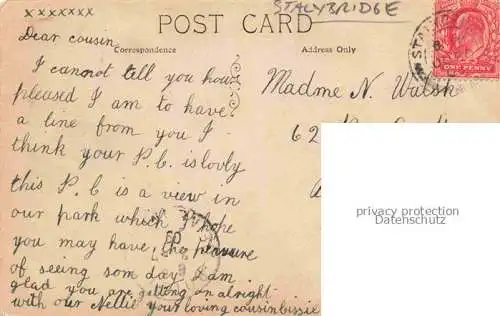 xxxxxxx
STALYBRIDGE
POST CARD
Correspondence
Address Only
Dear cousin
I cannot tell you how
pleased I am to have
a line from you I
think your P.C. is lovly
this P.C is a view in
our park which I hope
you may have the pleasure
of seeing som day I am
glad you are getting on alright
with our Nellie your loving cousin bissie
Madme N. Walsh
62
ONE PENNY
privacy protection
Datenschutz